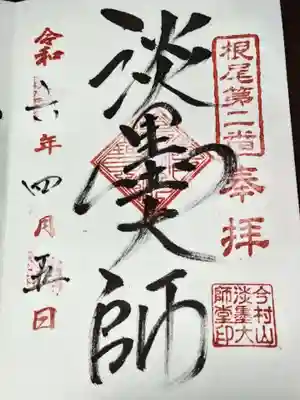 根尾第二番
奉拝
淡墨大師
令和六年四月五日
今村山
淡墨大
師堂印